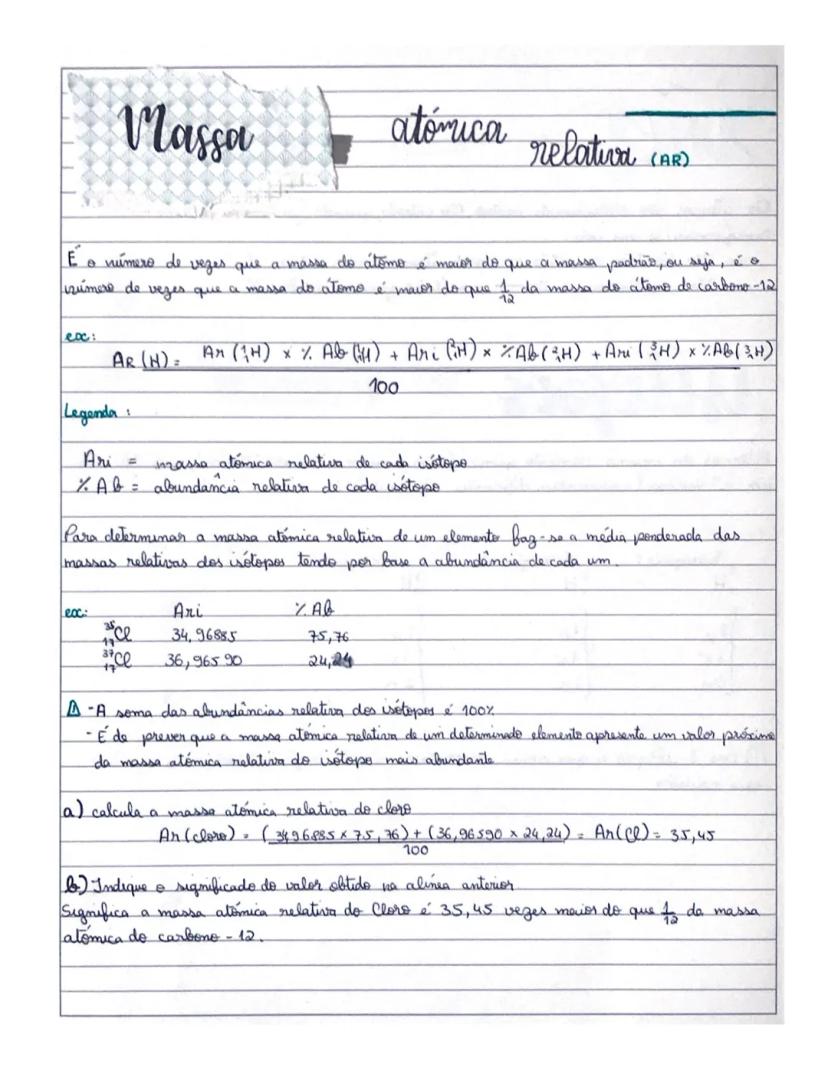 Massa atómica relativa (AR)
É o número de vezes que a massa do átomo é maior do que a massa padrão, ou seja, é o
número de vezes que a massa do átomo é maior do que 1/12 da massa do átomo de carbono-12
ex:
AR (H) = Ar (¹₁H) x % Ab (¹₁H) + Ari (²₁H) x % Ab (²₁H) + Ari (³₁H) x % Ab (³₁H)
100
Legenda :
Ari = massa atómica relativa de cada isótopo
% Ab = abundância relativa de cada isótopo
Para determinar a massa atómica relativa de um elemento faz-se a média ponderada das
massas relativas dos isótopos tendo por base a abundância de cada um.
ex: Ari % Ab
³⁵₁₇Cl 34,96885 75,76
³⁷₁₇Cl 36,96590 24,24
⚠ - A soma das abundâncias relativa dos isótopos é 100%
- É de prever que a massa atómica relativa de um determinado elemento apresente um valor próximo
da massa atómica relativa do isótopo mais abundante
a) calcula a massa atómica relativa do cloro
Ar (cloro) = (3496885 x 75,76) + (36,96590 x 24,24) = Ar (Cl) = 35,45
100
b) Indique o significado do valor obtido na alínea anterior
Significa a massa atómica relativa do Cloro é 35,45 vezes maior do que 1/12 da massa
atómica do carbono - 12.